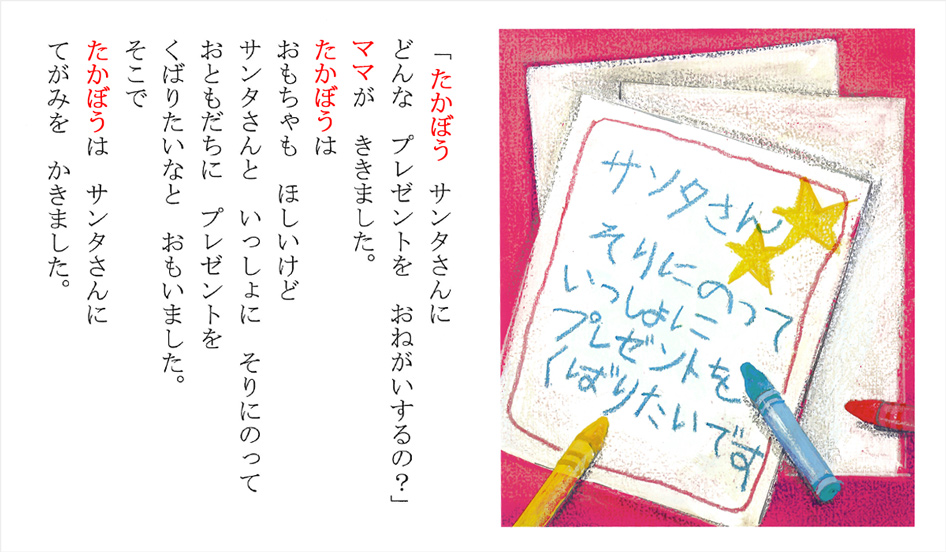 「たかぼう　サンタさんに
どんな　プレゼントを　おねがいするの？」
ママが　ききました。
たかぼうは
おもちゃも　ほしいけど
サンタさんと　いっしょに　そりにのって
おともだちに　プレゼントを
くばりたいなと　おもいました。
そこで
たかぼうは　サンタさんに
てがみを　かきました。
サンタさん
そりにのって
いっしょに
プレゼントを
くばりたいです